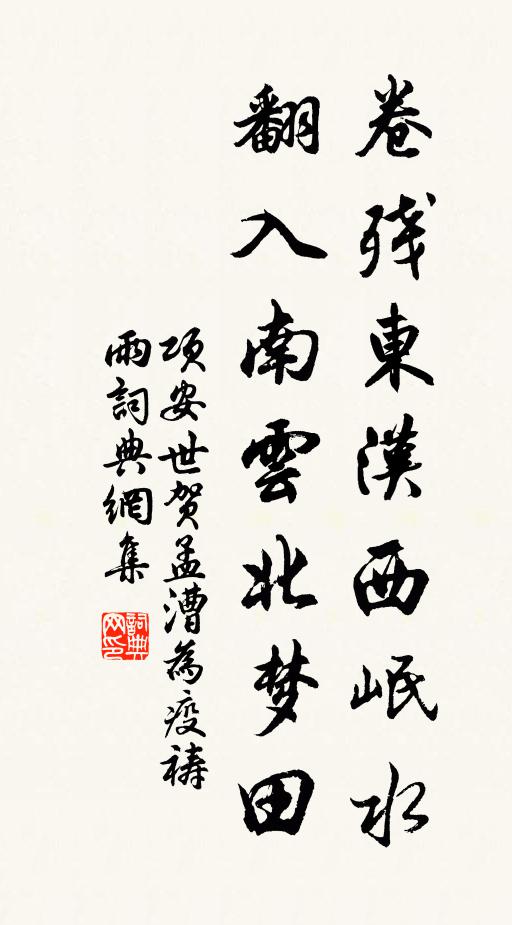 卷残東漢西岷水
翻入南雲北梦田
項安世贺孟漕為疫禱
雨詞典網集
詞典
网印